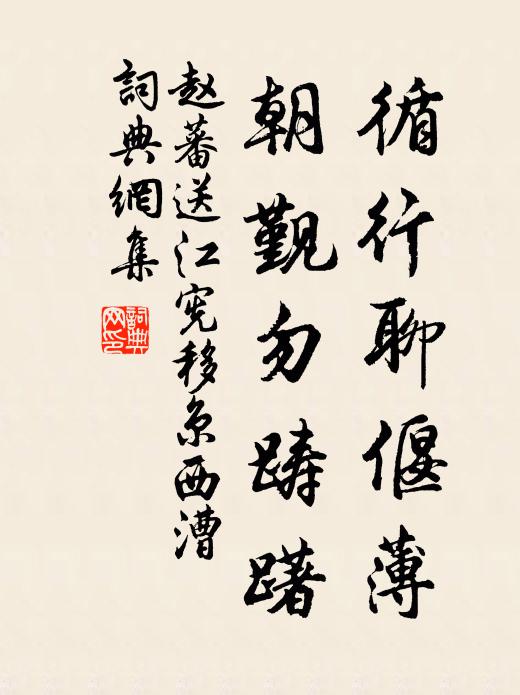 循行聊偃薄
朝覲勿踌躇
赵蕃送江宪移京西漕
詞典網集
詞典網印